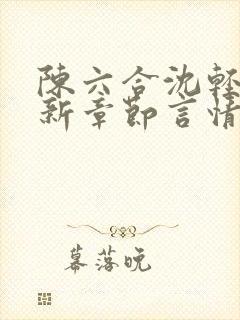 陳六合沈輕
新章節言情
幕落晚